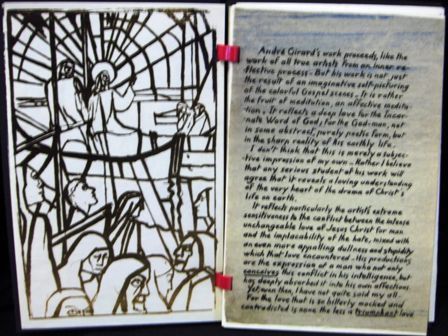 André Girard's work proceeds, like the
work of all true artists from an inner re-
flective process - But his work is not just
the result of an imaginative self-picturing
of the colorful Gospel scenes - It is rather
the fruit of meditation, an affective medita-
tion - It reflects a deep love for the Incar-
nate Word of God, for the God-man, not
in some abstract, purely poetic form, but
in the sharp reality of his earthly life.
I don't think that this is merely a subjec-
tive impression of my own - Rather I believe
that any serious student of his work will
agree that it reveals a loving understanding
of the very heart of the drama of Christ's
life on earth.
It reflects particularly the artist's extreme
sensitiveness to the conflict between the intense
unchangeable love of Jesus Christ for man
and the implacability of the hate, mixed with
an even more appalling dullness and stupidity
which that love encountered - His productions
are the expression of a man who not only
conceives this conflict in his intelligence, but
has deeply absorbed it into his own affections.
Yet even then, I have not quite said my all -
For the love that is so bitterly mocked and
contradicted is none the less a triumphant love